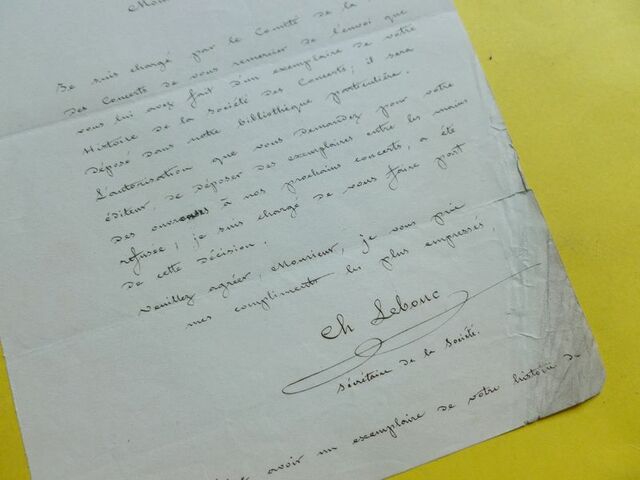 Mon
Je suis chargé par le Comité de la
des Concerts de vous remercier de l'envoi que
vous lui avez fait d'un exemplaire de votre
Histoire de la Société des Concerts; il sera
déposé dans notre bibliothèque particulière.
L'autorisation que vous demandez pour votre
éditeur, de déposer des exemplaires entre les mains
des ouvreuses à nos prochains concerts, a été
refusée; je suis chargé de vous faire part
de cette décision.
Veuillez agréer, Monsieur, je vous prie
mes compliments les plus empressés,
Ch Lebouc
Sécrétaire de la Société.
avoir un exemplaire de votre histoire de